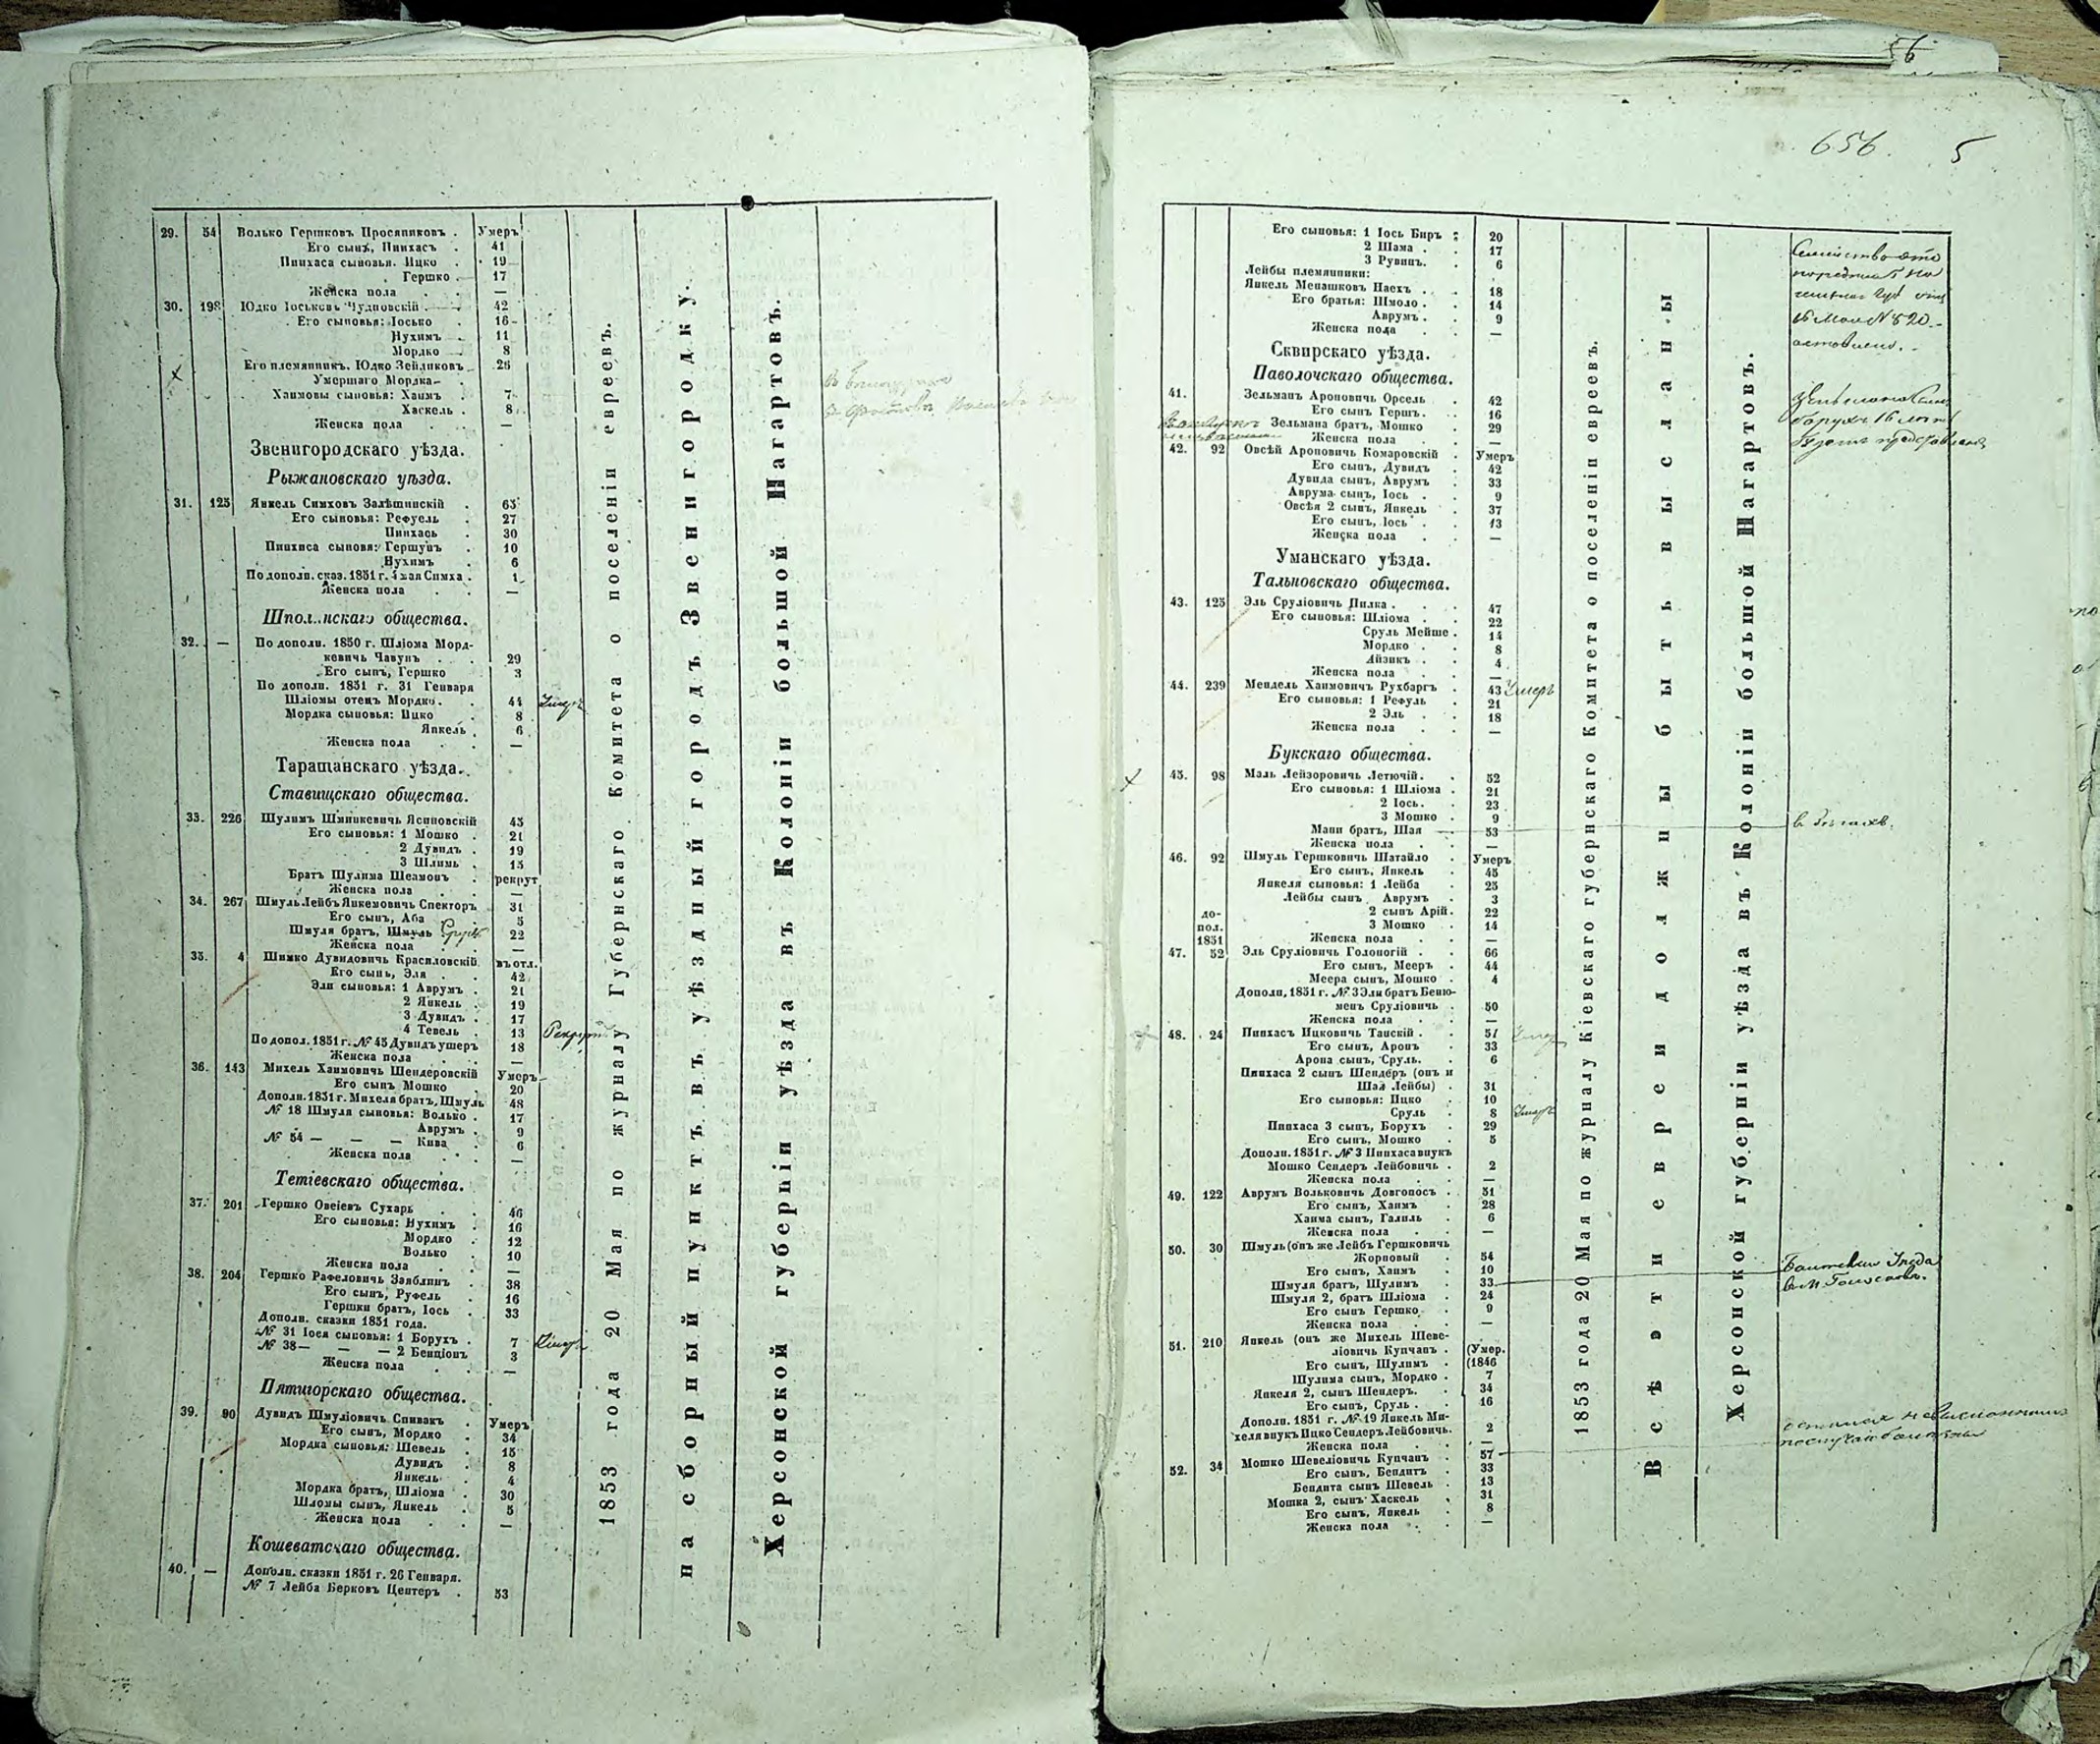 29. 54 Волько Гершковъ Просяниковъ . Умеръ
Его сынъ, Пинхасъ . 41
Пинхаса сыновья. Ицко . 19
Гершко . 17
Женска пола . . —
30. 198 Юдко Іоськовъ Чудновскій . 42
Его сыновья: Іосько . 16
Нухимъ . 11
Мордко . 8
Его племянникъ. Юдко Зейликовъ 26
Умершаго Мордка
Хаимовы сыновья: Хаимъ . 7
Хаскель . 8
Женска пола . . —
Звенигородскаго уѣзда.
Рыжановскаго уѣзда.
31. 125 Янкель Симховъ Залѣшинскій . 65
Его сыновья: Рефуель . 27
Пинхась . 30
Пинхаса сыновя: Гершунъ . 10
Нухимъ . 6
По дополн. сказ. 1851 г. 4 мая Симха . 1
Женска пола . . —
Шпол..нскаго общества.
32. — По дополн. 1850 г. Шліома Морд-
кевичь Чавунъ . . 29
Его сынъ, Гершко 3
По дополн. 1851 г. 31 Генваря
Шліомы отецъ Мордко. . 44 Умеръ
Мордка сыновья: Ицко . 8
Янкель . 6
Женска пола . . —
Таращанскаго уѣзда.
Ставищскаго общества.
33. 226 Шулимъ Шмишкевичь Ясиновскій 45
Его сыновья: 1 Мошко . 21
2 Дувидъ . 19
3 Шлимъ . 15
Братъ Шулима Шеамонъ . рекрут
Женска пола . —
34. 267 Шмуль Лейбъ Янкемовичь Спекторъ 31
Его сынъ, Аба . 5
Шмуля братъ, Шмуль Сруль 22
Женска пола . . —
35. 4 Шимко Дувидовичь Красиловскій въ отл.
Его сынъ, Эля . . 42
Эли сыновья: 1 Аврумъ . 21
2 Янкель . 19
3 Дувидъ . 17
4 Тевель . 13 Рекрутъ
По допол. 1851 г. № 45 Дувидъ ушеръ 18
Женска пола . . —
36. 143 Михель Хаимовичь Шендеровскій Умеръ
Его сынъ Мошко . 20
Дополн. 1851 г. Михеля братъ, Шмуль 48
№ 18 Шмуля сыновья: Волько . 17
Аврумъ . 9
№ 54 — — — Кива . 6
Женска пола . . —
Тетіевскаго общества.
37. 201 Гершко Овсіевъ Сухарь . . 46
Его сыновья: Нухимъ . 16
Мордко . 12
Волько . 10
Женска пола . . —
38. 204 Гершко Рафеловичь Заяблинъ . 38
Его сынъ, Руфель . 16
Гершки братъ, Іось . 33
Дополн. сказки 1851 года.
№ 31 Іося сыновья: 1 Борухъ . 7 Умеръ
№ 38 — — — 2 Бенціонъ 3
Женска пола . . —
Пятигорскаго общества.
39. 90 Дувидъ Шмуліовичь Спивакъ . Умеръ
Его сынъ, Мордко . 34
Мордка сыновья: Шевель . 15
Дувидъ . 8
Янкель . 4
Мордка братъ, Шліома . 30
Шломы сынъ, Янкель . 5
Женска пола . . —
Кошеватскаго общества.
40. — Дополн. сказки 1851 г. 26 Генваря.
№ 7 Лейба Берковъ Центеръ . 53
1853 года 20 Мая по журналу Губернскаго Комитета о поселеніи евреевъ.
на сборный пунктъ въ уѣздный городъ Звенигородку.
Херсонской губерніи уѣзда въ Колоніи большой Нагартовъ.
656. 5
Его сыновья: 1 Іось Биръ : 20
2 Шама . . 17
3 Рувинъ. . 6
Лейбы племянники:
Янкель Менашковъ Пасхъ . . 18
Его братья: Шмоло . . 14
Аврумъ . . 9
Женска пола . . —
Сквирскаго уѣзда.
Паволочскаго общества.
41. Зельманъ Ароновичь Орсель . 42
Его сынъ Гершъ. . 16
Зельмана братъ, Мошко . 29
Женска пола . . —
42. 92 Овсѣй Ароновичь Комаровскій . Умеръ
Его сынъ, Дувидъ . 42
Дувида сынъ, Аврумъ . 33
Аврума сынъ, Іось . . 9
Овсѣя 2 сынъ, Янкель . 37
Его сынъ, Іось . . 13
Женска пола . . —
Уманскаго уѣзда.
Тальновскаго общества.
43. 125 Эль Сруліовичь Пилка . . . 47
Его сыновья: Шліома . . 22
Сруль Мейше . 14
Мордко . . 8
Айзикъ . . 4
Женска пола . . —
44. 239 Мендель Хаимовичъ Рухбаргъ . 43 Умеръ
Его сыновья: 1 Рефуль . 21
2 Эль . . 18
Женска пола . . —
Букскаго общества.
45. 98 Маль Лейзоровичь Летючій. . 52
Его сыновья: 1 Шліома . 21
2 Іось. . 23
3 Мошко . 9
Мани братъ, Шая 53
Женска пола . . —
46. 92 Шмуль Гершковичь Шатайло . Умеръ
Его сынъ, Янкель . 45
Янкеля сыновья: 1 Лейба . 25
Лейбы сынъ Аврумъ . 3
до- 2 сынъ Арій. 22
пол. 3 Мошко . 14
1851 Женска пола . . —
47. 52 Эль Сруліовичь Голоногій . . 66
Его сынъ, Мееръ . 44
Меера сынъ, Мошко . 4
Дополн. 1851 г. № 3 Эли братъ Беню-
менъ Сруліовичь . 50
Женска пола . . —
48. 24 Пинхасъ Ицковичь Танскій . . 57
Его сынъ, Аронъ . 33
Арона сынъ, Сруль. . 6
Пинхаса 2 сынъ Шендеръ (онъ и
Шая Лейбы) . 31
Его сыновья: Ицко . 10
Сруль . 8 Умеръ
Пинхаса 3 сынъ, Борухъ . 29
Его сынъ, Мошко . 5
Дополн. 1851 г. № 3 Пинхаса внукъ
Мошко Сендеръ Лейбовичь . 2
Женска пола . . —
49. 122 Аврумъ Вольковичь Довгоносъ . 51
Его сынъ, Хаимъ . 28
Хаима сынъ, Галиль . 6
Женска пола . . —
50. 30 Шмуль (онъ же Лейбъ Гершковичь
Жорновый . 54
Его сынъ, Хаимъ . 10
Шмуля братъ, Шулимъ . 33
Шмуля 2, братъ Шліома . 24
Его сынъ Гершко . 9
Женска пола . . —
51. 210 Янкель (онъ же Михель Шеве-
ліовичь Купчанъ . (Умер.
Его сынъ, Шулимъ . (1846
Шулима сынъ, Мордко . 7
Янкеля 2, сынъ Шендеръ. . 34
Его сынъ, Сруль . . 16
Дополн. 1851 г. № 19 Янкель Ми-
хеля внукъ Ицко Сендеръ Лейбовичь. 2
Женска пола . . —
52. 34 Мошко Шевеліовичь Купчанъ . 57
Его сынъ, Бендитъ . 33
Бендита сынъ Шевель . 13
Мошка 2, сынъ Хаскель . 31
Его сынъ, Янкель . 8
Женска пола . . —
1853 года 20 Мая по журналу Кіевскаго губернскаго Комитета о поселеніи евреевъ.
Всѣ эти евреи должны быть высланы
Херсонской губерніи уѣзда въ Колоніи большой Нагартовъ.